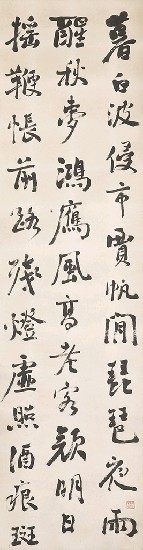 暮白波侵市賈帆間琵琶夜雨
醒秋夢鴻鴈風高老客顏明日
搖鞭悵前路殘燈虛照酒痕斑